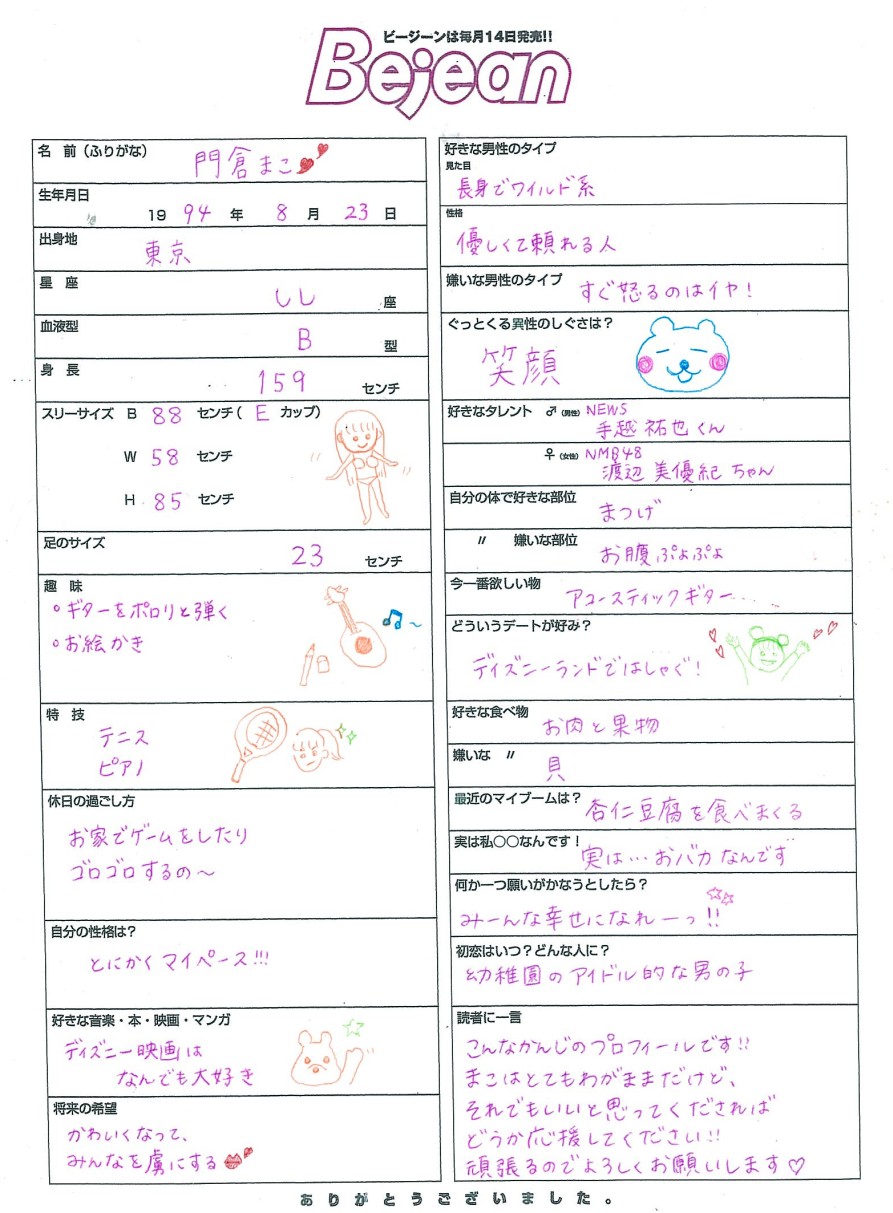 ビージーンは毎月14日発売!!
Bejean
名 前(ふりがな)
門倉まこ
生年月日
19 94 年 8 月 23 日
出身地
東京
星 座
しし 座
血液型
B 型
身 長
159 センチ
スリーサイズ B 88 センチ( E カップ)
W 58 センチ
H 85 センチ
足のサイズ
23 センチ
趣 味
ギターをポロリと弾く
お絵かき
特 技
テニス
ピアノ
休日の過ごし方
お家でゲームをしたり
ゴロゴロするの〜
自分の性格は?
とにかくマイペース!!!
好きな音楽・本・映画・マンガ
ディズニー映画は
なんでも大好き
将来の希望
かわいくなって、
みんなを虜にする
好きな男性のタイプ
見た目
長身でワイルド系
性格
優しくて頼れる人
嫌いな男性のタイプ
すぐ怒るのはイヤ!
ぐっとくる異性のしぐさは?
笑顔
好きなタレント ♂(男性) NEWS
手越祐也くん
♀(女性) NMB48
渡辺美優紀ちゃん
自分の体で好きな部位
まつげ
〃 嫌いな部位
お腹ぷよぷよ
今一番欲しい物
アコースティックギター...
どういうデートが好み?
ディズニーランドではしゃぐ!
好きな食べ物
お肉と果物
嫌いな 〃
貝
最近のマイブームは?
杏仁豆腐を食べまくる
実は私○○なんです!
実は…おバカなんです
何か一つ願いがかなうとしたら?
みーんな幸せになれーっ!!
初恋はいつ?どんな人に?
幼稚園のアイドル的な男の子
読者に一言
こんなかんじのプロフィールです!!
まこはとてもわがままだけど、
それでもいいと思ってくだされば
どうか応援してください!!
頑張るのでよろしくお願いします♡
ありがとうございました。